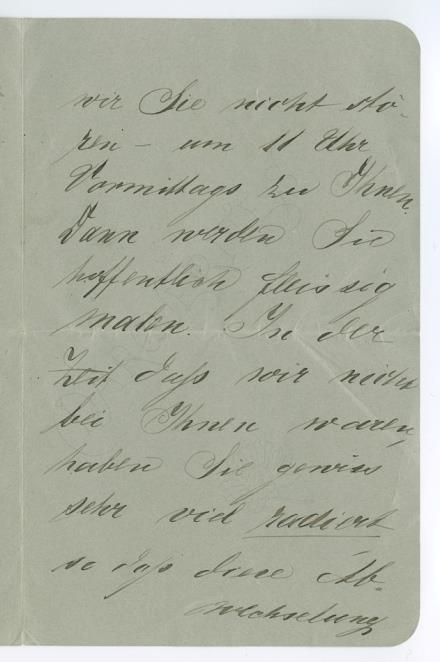 wir Sie nicht stö-
ren – um 11 Uhr
Vormittags zu Ihnen.
Dann werden Sie
hoffentlich fleissig
malen. In der
Zeit daß wir nicht
bei Ihnen waren,
haben Sie gewiss
sehr viel radiert
so daß diese Ab-
wechselung